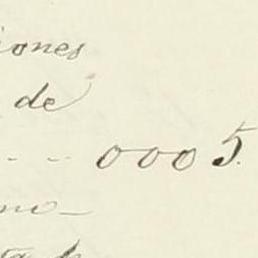 iones
de
- - - 0005.
mo-